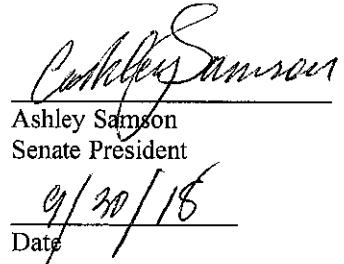 Ashley Samson
Ashley Samson
Senate President
9/30/18
Date